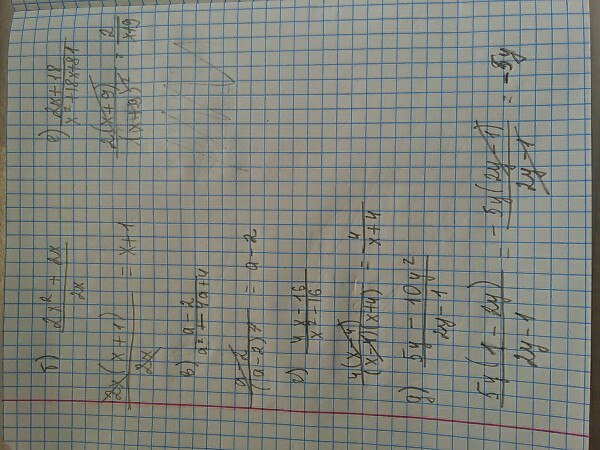 б) (2x² + 2x)/2x
2x(x+1)/2x = x+1
в) (a-2)/(a²-4a+4)
(a-2)/(a-2)² = a-2
г) (4x-16)/(x²-16)
4(x-4)/(x-4)(x+4) = 4/(x+4)
д) (5y - 10y²)/(2y-1)
5y(1-2y)/(2y-1) = -5y(2y-1)/(2y-1) = -5y
е) (2x+18)/(x²+18x+81)
2(x+9)/(x+9)² = 2/(x+9)